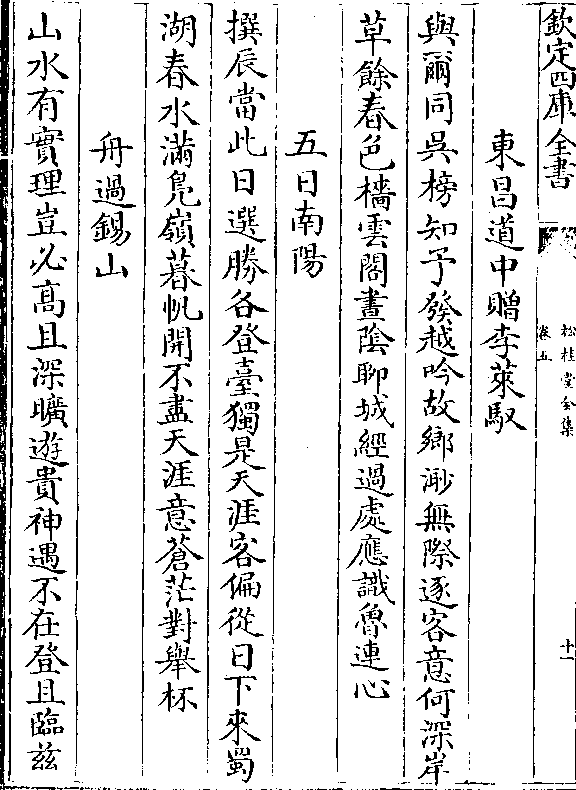 欽定四庫全書
松桂堂全集
卷五
十一
東昌道中贈李萊馭
與爾同吳榜知予發越吟故鄉渺無際逐客意何深岸
草餘春色檣雲閣晝陰聊城經過處應識魯連心
五日南陽
撰辰當此日選勝各登臺獨是天涯客偏從日下來蜀
湖春水滿鳧嶺暮帆開不盡天涯意蒼茫對舉杯
舟過錫山
山水有實理豈必髙且深曠遊貴神遇不在登且臨茲